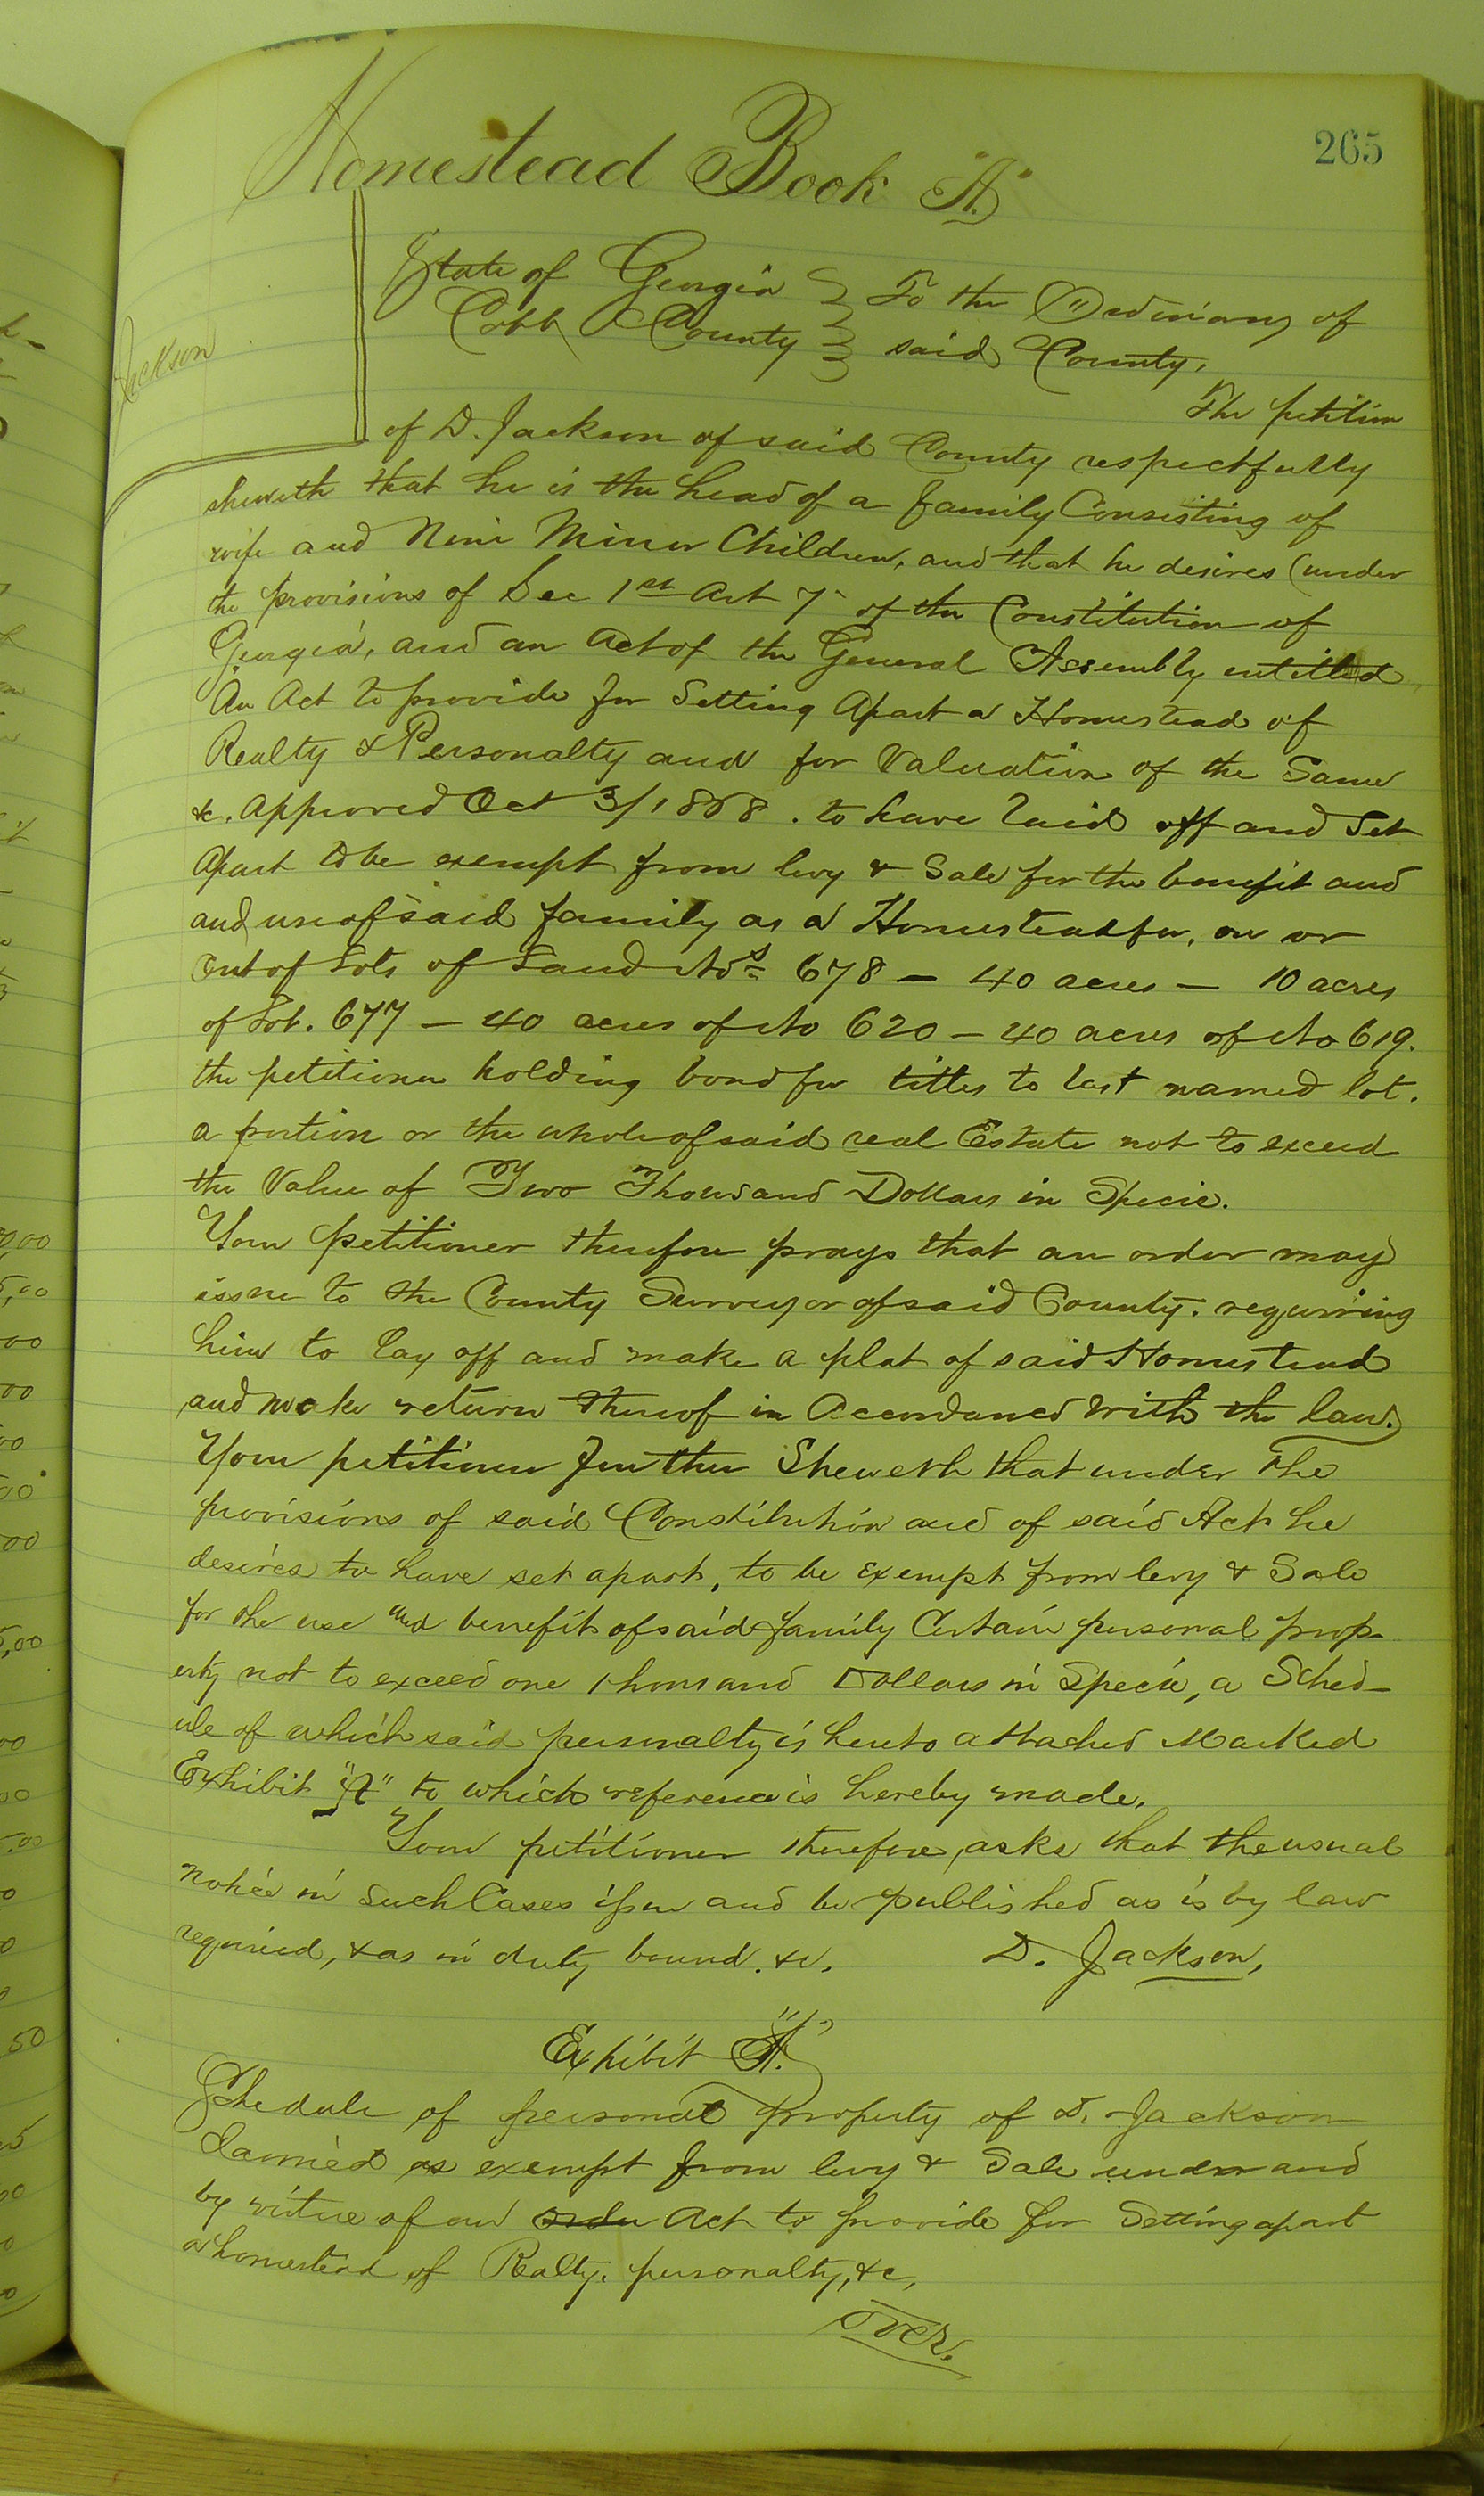 265
Homestead Book "A"
Jackson
State of Georgia } To the Ordinary of
Cobb County } said County.
The petition
of D. Jackson of said County respectfully
sheweth that he is the head of a family Consisting of
wife and Nine Minor Children, and that he desires (under
the provisions of Sec 1st Art 7 of the Constitution of
Georgia, and an Act of the General Assembly entitled
An Act to provide for Setting Apart a Homestead of
Realty & Personalty and for Valuation of the Same
&c. Approved Oct 3/1868. to have laid off and Set
Apart to be exempt from levy & Sale for the benefit and
and use of said family as a Homestead for, on or
Out of Lots of Land Nos 678 — 40 acres — 10 acres
of Lot. 677 — 40 acres of No 620 — 40 acres of No 619.
the petitioner holding bond for titles to last named lot.
a portion or the whole of said real Estate not to exceed
the Value of Two Thousand Dollars in Specie.
Your petitioner therefore prays that an order may
issue to the County Surveyor of said County. requiring
him to lay off and make a plat of said Homestead
and make return thereof in Accordance with the law.
Your petitioner further Sheweth that under the
provisions of said Constitution and of said Act he
desires to have set apart, to be exempt from levy & Sale
for the use and benefit of said family Certain personal prop-
erty not to exceed one thousand Dollars in Specie, a Sched-
ule of which said personalty is hereto attached Marked
Exhibit "A" to which reference is hereby made.
Your petitioner therefore, asks that the usual
notice in such Cases issue and be published as is by law
required, & as in duty bound. &c. D. Jackson,
Exhibit "A."
Schedule of personal property of D. Jackson
claimed as exempt from levy & Sale under and
by virtue of an order Act to provide for Setting apart
a homestead of Realty. personalty, &c,
over.